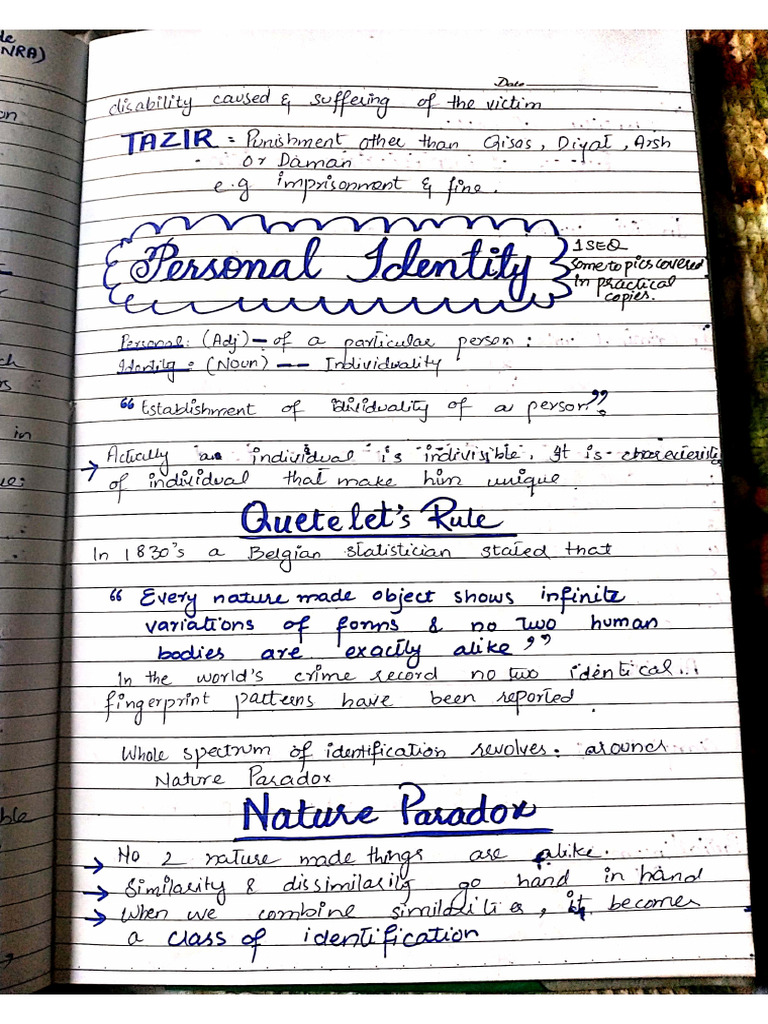 de
NRA)
on
Date
disability caused & suffering of the victim
TAZIR = Punishment other than Qisas, Diyat, Arsh
or Daman
e.g imprisonment & fine.
Personal Identity
1 SEQ
Some topics covered
in practical
copies.
Personal: (Adj) — of a particular person:
Identity: (Noun) —— Individuality
"Establishment of individuality of a person".
Actually an individual is indivisible, It is
of individual that make him unique
Quetelet's Rule
In 1830's a Belgian statistician stated that
"Every nature made object shows infinite
variations of forms & no two human
bodies are exactly alike"
In the world's crime record no two identical...
fingerprint patterns have been reported.
Whole spectrum of identification revolves. around
Nature Paradox
Nature Paradox
→ No 2 nature made things are alike.
→ Similarity & dissimilarity go hand in hand
→ When we combine similarities, it becomes
a class of identification
ch
rs
in
ue:
ble